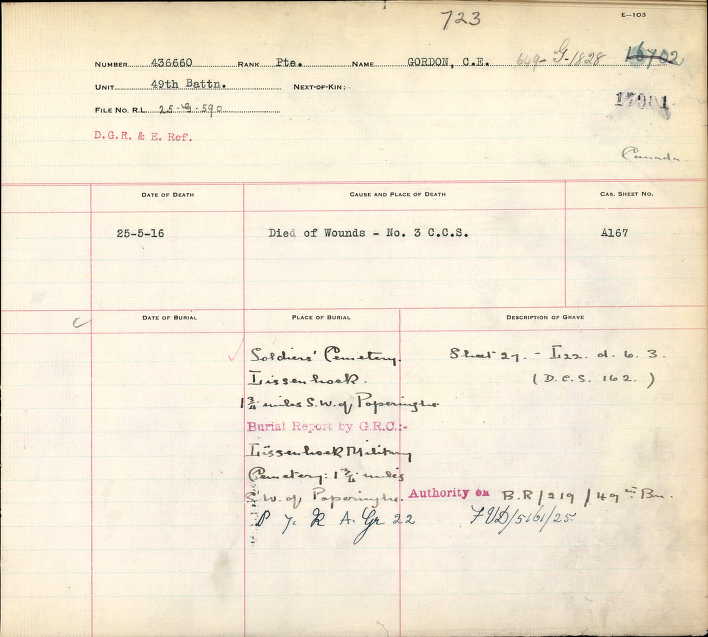 723
E—103
NUMBER 436660 RANK Pte. NAME GORDON, C.E. 649-G-1828 16702
UNIT 49th Battn. NEXT-OF-KIN:-
17081
FILE NO. R.L. 25-G-590
D.G.R. & E. Ref.
Canada
DATE OF DEATH CAUSE AND PLACE OF DEATH CAS. SHEET NO.
25-5-16 Died of Wounds - No. 3 C.C.S. A167
C DATE OF BURIAL PLACE OF BURIAL DESCRIPTION OF GRAVE
Soldiers' Cemetery. Sheet 27. - L22. d. 6. 3.
Lissenhoek. (D.C.S. 162.)
1¾ miles S.W. of Poperinghe
Burial Report by G.R.C.:-
Lissenhoek Military
Cemetery: 1¾ miles
S.W. of Poperinghe. Authority on B.R/219/49th Bn.
P 7. R A. Gr 22